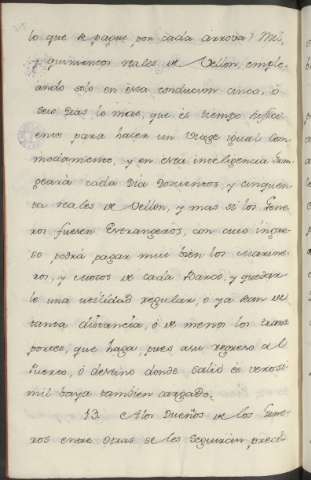 lo que se pague por cada arrova) Mil,
y quinientos reales de Vellon, emple-
ando solo en esta conducion cinco, ò
seis dias lo mas, que es tiempo sufici-
ente para hacer un viage igual com-
modamente, y en esta inteligencia Gan-
gearia cada dia Doscientos, y cinquen-
ta reales de Vellon, y mas si los Gene-
ros fuesen Extrangeros, con cuio ingre-
so podrà pagar mui bien los marine-
ros, y mozos de cada Barco, y quedar-
le una utilidad regular, ò ya sean de
tanta distancia, ò de menos los trans-
portes, que haga, pues a su regreso al
Puerto, ò destino donde saliò es verosi-
mil baya tambien cargado.
13. A los Dueños de los Gene-
ros entre otras se les seguirian, preci-